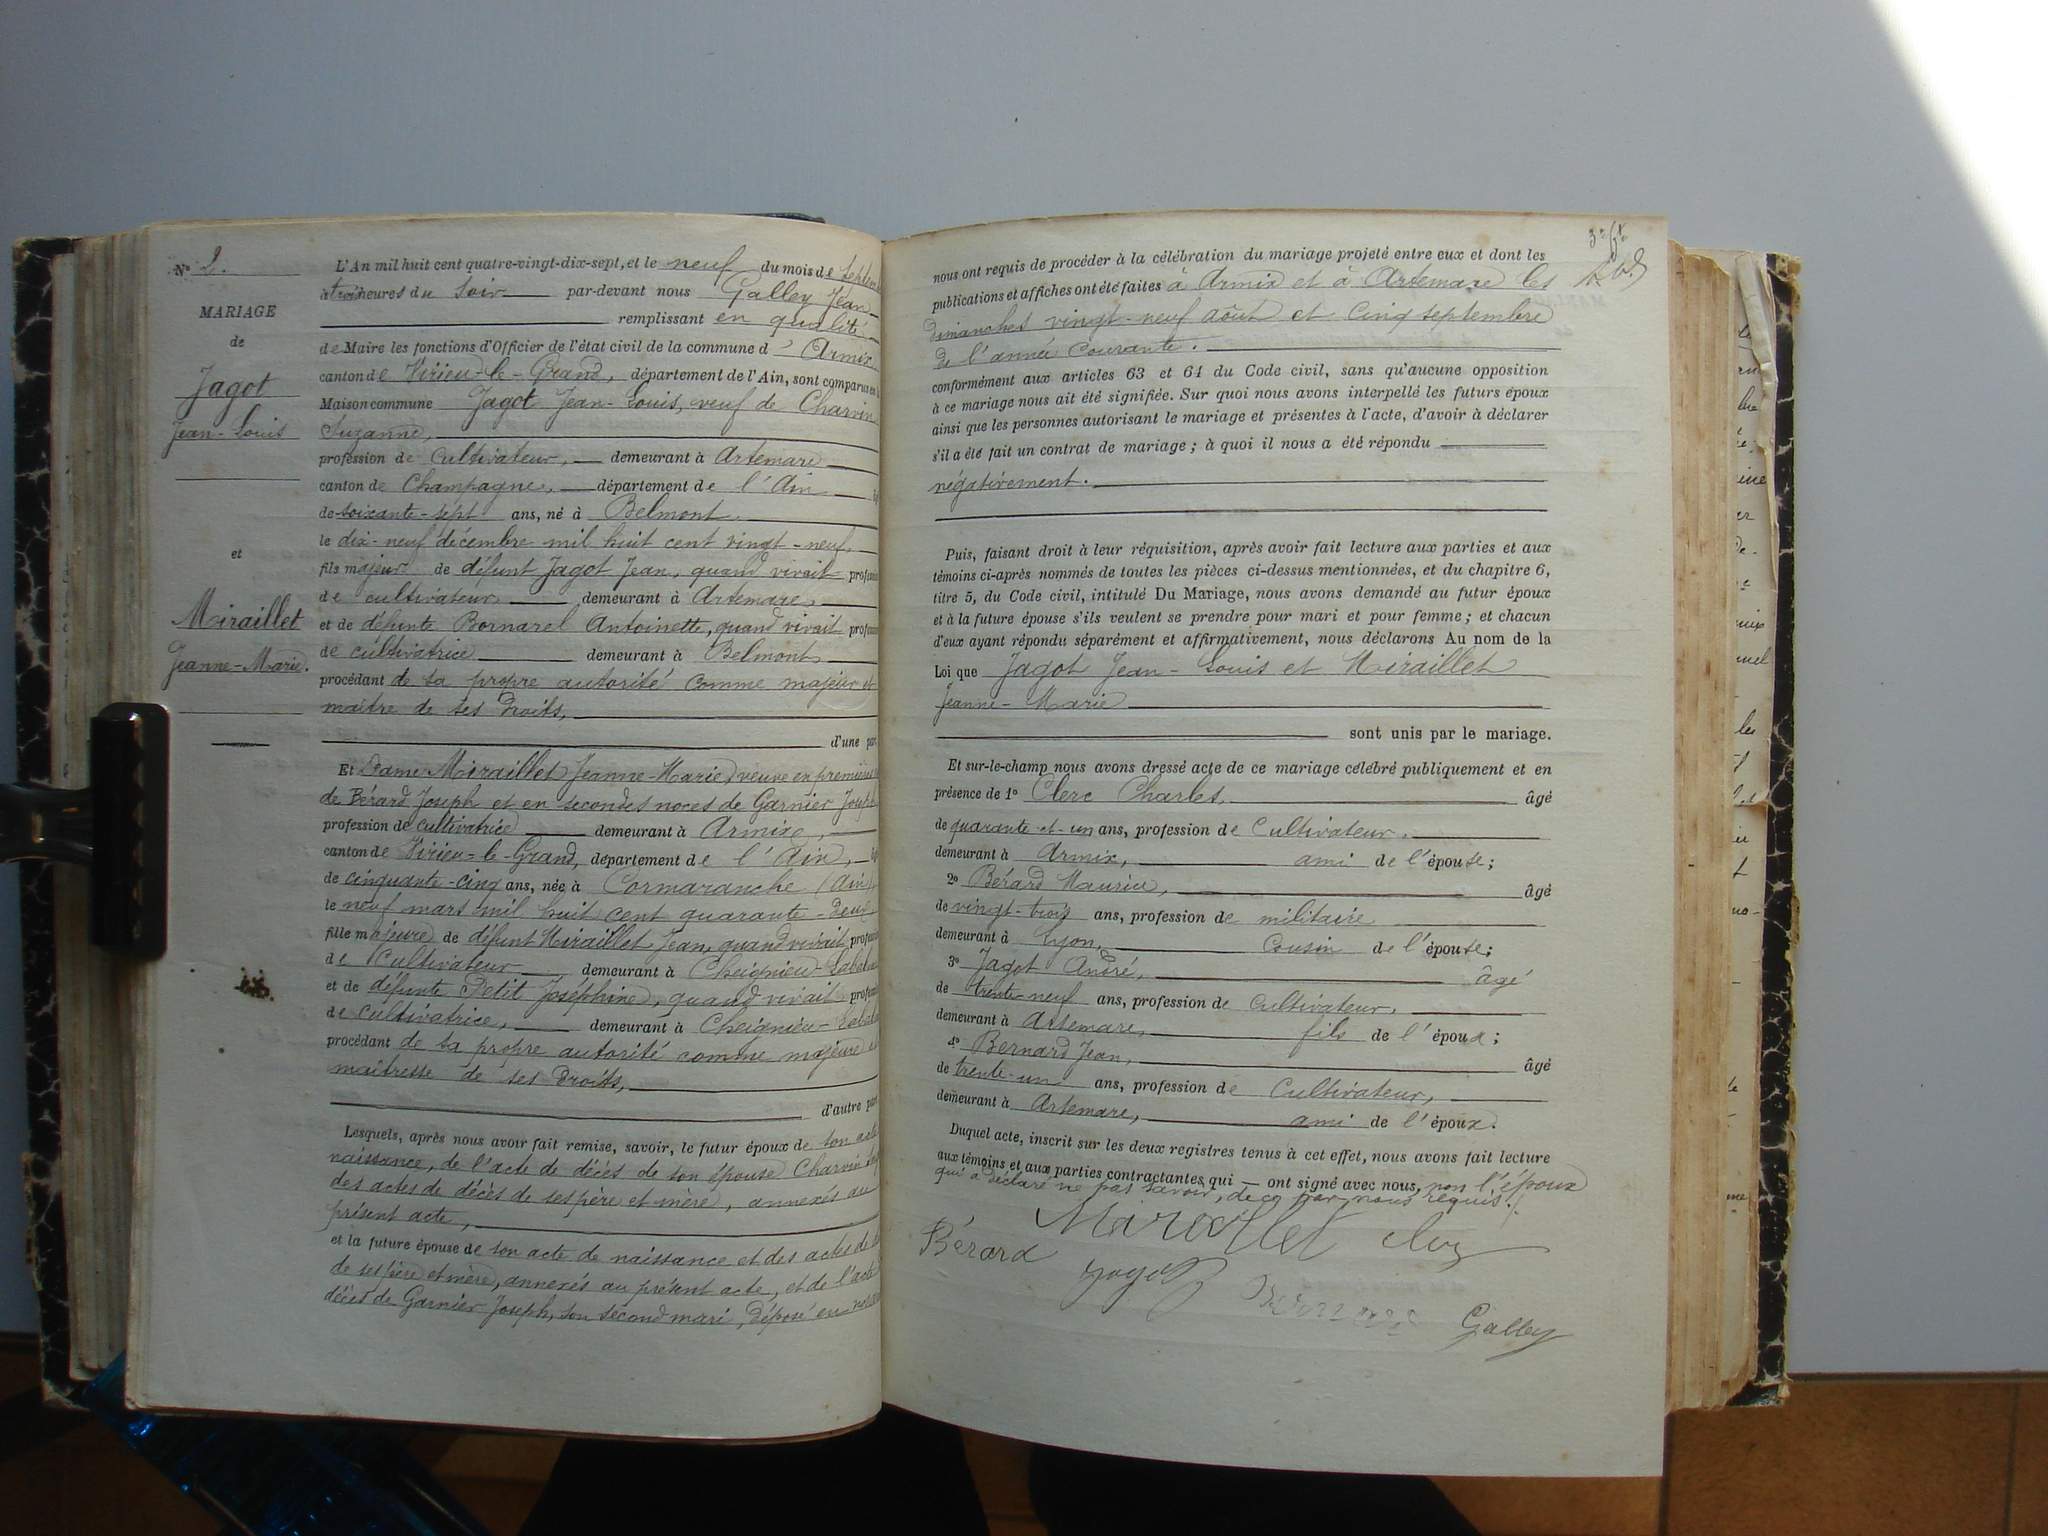 N° 2.
MARIAGE
de
Jagot
Jean-Louis
et
Miraillet
Jeanne-Marie.
L'An mil huit cent quatre-vingt-dix-sept, et le neuf du mois de septem
à trois heures du soir par-devant nous Galley Jean
remplissant en qualité
de Maire les fonctions d'Officier de l'état civil de la commune d'Armix
canton de Virieu-le-Grand, département de l'Ain, sont comparus en
Maison commune Jagot Jean-Louis, veuf de Charvin
Suzanne,
profession de cultivateur, demeurant à Artemare
canton de Champagne, département de l'Ain
de soixante-sept ans, né à Belmont
le dix-neuf décembre mil huit cent vingt-neuf,
fils majeur de défunt Jagot Jean, quand vivait profession
de cultivateur demeurant à Artemare,
et de défunte Bornarel Antoinette, quand vivait profession
de cultivatrice demeurant à Belmont
procédant de sa propre autorité comme majeur et
maître de ses droits,
d'une part
Et Dame Miraillet Jeanne-Marie, veuve en premières
de Bérard Joseph et en secondes noces de Garnier Joseph
profession de cultivatrice demeurant à Armix,
canton de Virieu-le-Grand, département de l'Ain,
de cinquante-cinq ans, née à Cormaranche (Ain),
le neuf mars mil huit cent quarante-deux
fille majeure de défunt Miraillet Jean, quand vivait profession
de cultivateur demeurant à Cheignieu-Labal
et de défunte Petit Joséphine, quand vivait profession
de cultivatrice, demeurant à Cheignieu-Labal
procédant de sa propre autorité comme majeure et
maîtresse de ses droits,
d'autre part
Lesquels, après nous avoir fait remise, savoir, le futur époux de son acte
naissance, de l'acte de décès de son épouse Charvin
des actes de décès de ses père et mère, annexés au
présent acte,
et la future épouse de son acte de naissance et des actes de
de ses père et mère, annexés au présent acte, et de l'acte
décès de Garnier Joseph, son second mari, déposé en
nous ont requis de procéder à la célébration du mariage projeté entre eux et dont les
publications et affiches ont été faites à Armix et à Artemare les
dimanches vingt-neuf août et cinq septembre
de l'année courante.
conformément aux articles 63 et 64 du Code civil, sans qu'aucune opposition
à ce mariage nous ait été signifiée. Sur quoi nous avons interpellé les futurs époux
ainsi que les personnes autorisant le mariage et présentes à l'acte, d'avoir à déclarer
s'il a été fait un contrat de mariage ; à quoi il nous a été répondu
négativement.
Puis, faisant droit à leur réquisition, après avoir fait lecture aux parties et aux
témoins ci-après nommés de toutes les pièces ci-dessus mentionnées, et du chapitre 6,
titre 5, du Code civil, intitulé Du Mariage, nous avons demandé au futur époux
et à la future épouse s'ils veulent se prendre pour mari et pour femme ; et chacun
d'eux ayant répondu séparément et affirmativement, nous déclarons Au nom de la
Loi que Jagot Jean-Louis et Miraillet
Jeanne-Marie
sont unis par le mariage.
Et sur-le-champ nous avons dressé acte de ce mariage célébré publiquement et en
présence de 1° Clerc Charles, âgé
de quarante-et-un ans, profession de cultivateur.
demeurant à Armix, ami de l'épouse;
2° Bérard Maurice, âgé
de vingt-trois ans, profession de militaire
demeurant à Lyon, cousin de l'épouse;
3° Jagot André, âgé
de trente-neuf ans, profession de cultivateur,
demeurant à Artemare, fils de l'époux;
4° Bernard Jean, âgé
de trente-un ans, profession de cultivateur,
demeurant à Artemare, ami de l'époux.
Duquel acte, inscrit sur les deux registres tenus à cet effet, nous avons fait lecture
aux témoins et aux parties contractantes, qui — ont signé avec nous, non l'époux
qui a déclaré ne pas savoir, de ce par nous requis.
Miraillet
Bérard
Jagot
Galley